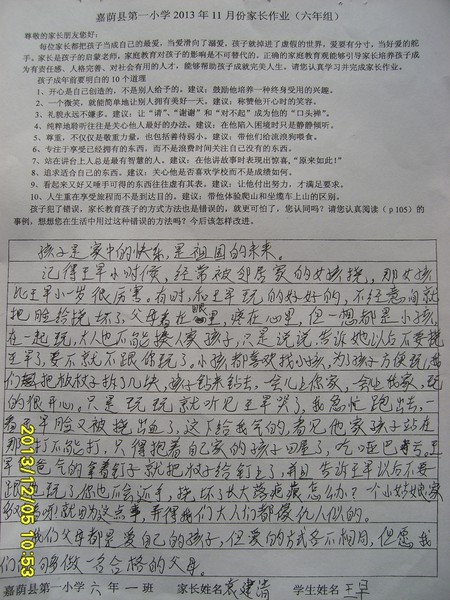 嘉荫县第一小学 2013 年 11 月份家长作业（六年组）
尊敬的家长朋友您好：
每位家长都把孩子当成自己的最爱，当爱滑向了溺爱，孩子就掉进了虚假的世界，爱要有分寸，当好爱的舵
手。家长是孩子的启蒙老师，家庭教育对孩子的影响是不可替代的。正确的家庭教育观能够引导家长培养孩子成
为有责任感、人格完善、对社会有用的人才，能够帮助孩子成就完美人生。请您认真学习并完成家长作业。
孩子成年前要明白的 10 个道理
1、开心是自己创造的，不是别人给予的。建议：鼓励他培养一种终身受用的兴趣。
2、一个微笑，就能简单地让别人拥有美好一天。建议：称赞他开心时的笑容。
3、礼貌永远不嫌多。建议：让“请”、“谢谢”和“对不起”成为他的“口头禅”。
4、纯粹地聆听往往是关心他人最好的办法。建议：在他陷入困境时只是静静倾听。
5、尊重，不仅仅是敬重力量，也包括善待弱小。建议：带他们给流浪狗喂食。
6、专注于享受已经拥有的东西，而不是浪费时间关注自己没有的东西。
7、站在讲台上人总是最有智慧的人。建议：在他讲故事时表现出惊喜，“原来如此！”
8、追求适合自己的东西。建议：关心他是否喜欢学校而不是成绩如何。
9、看起来又好又唾手可得的东西往往虚有其表。建议：让他付出努力，才满足要求。
10、人生重在享受旅程而不是到达目的。建议：带他体验爬山和坐缆车上山的区别。
孩子犯了错误，家长教育孩子的方式方法也是错误的，就更可怕了。您认同吗？请您认真阅读（p105）的
事例，想想您在生活中用过这种错误的方法吗？今后应该怎样改进。
孩子是家中的快乐，是祖国的未来。
记得王早小时候，经常被邻居家的女孩挠，那女孩
比王早小一岁很厉害。有时，和王早玩的好好的，不经意间就
把脸给挠坏了，父母看在眼里，疼在心里，但一想都是小孩
在一起玩，大人也不能接人家孩子，只是说说，告诉她以后不要挠
王早了，要不就不跟你玩了。小孩都喜欢找小孩，为了孩子方便玩，我
们把放杖子拆了几块，孩子钻来钻去，会儿上你家，会上我家，玩
的很开心。只是玩玩就听见王早哭了，我急忙跑出去，一
看王早脸又被挠出血了，这下给我气的，看见他家孩子站在
那打不能打，只得抱着自家的孩子回屋了，吃哑巴亏。王早
爸气的拿着钉子就把杖子给钉上了，并且告诉王早以后不要
跟他玩了，你也不会还手，挠坏了长大落疤痕怎么办？一个小姑娘家
就因为这点事，弄得我们大人们都像仇人似的。
我们父母都是爱自己的孩子，但爱的方式各不相同，但愿我
们能够做一名合格的父母。
嘉荫县第一小学 六 年 一 班 家长姓名 袁建清 学生姓名 王早
2013/12/05 10:53